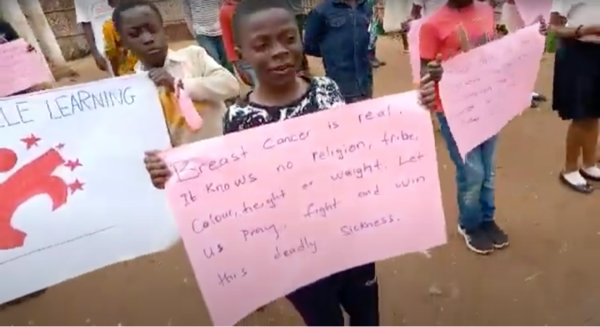 LE LEARNING
Breast Cancer is real.
It knows no religion, tribe,
Colour, height or weight. Let
us pray, fight and win
this deadly sickness.